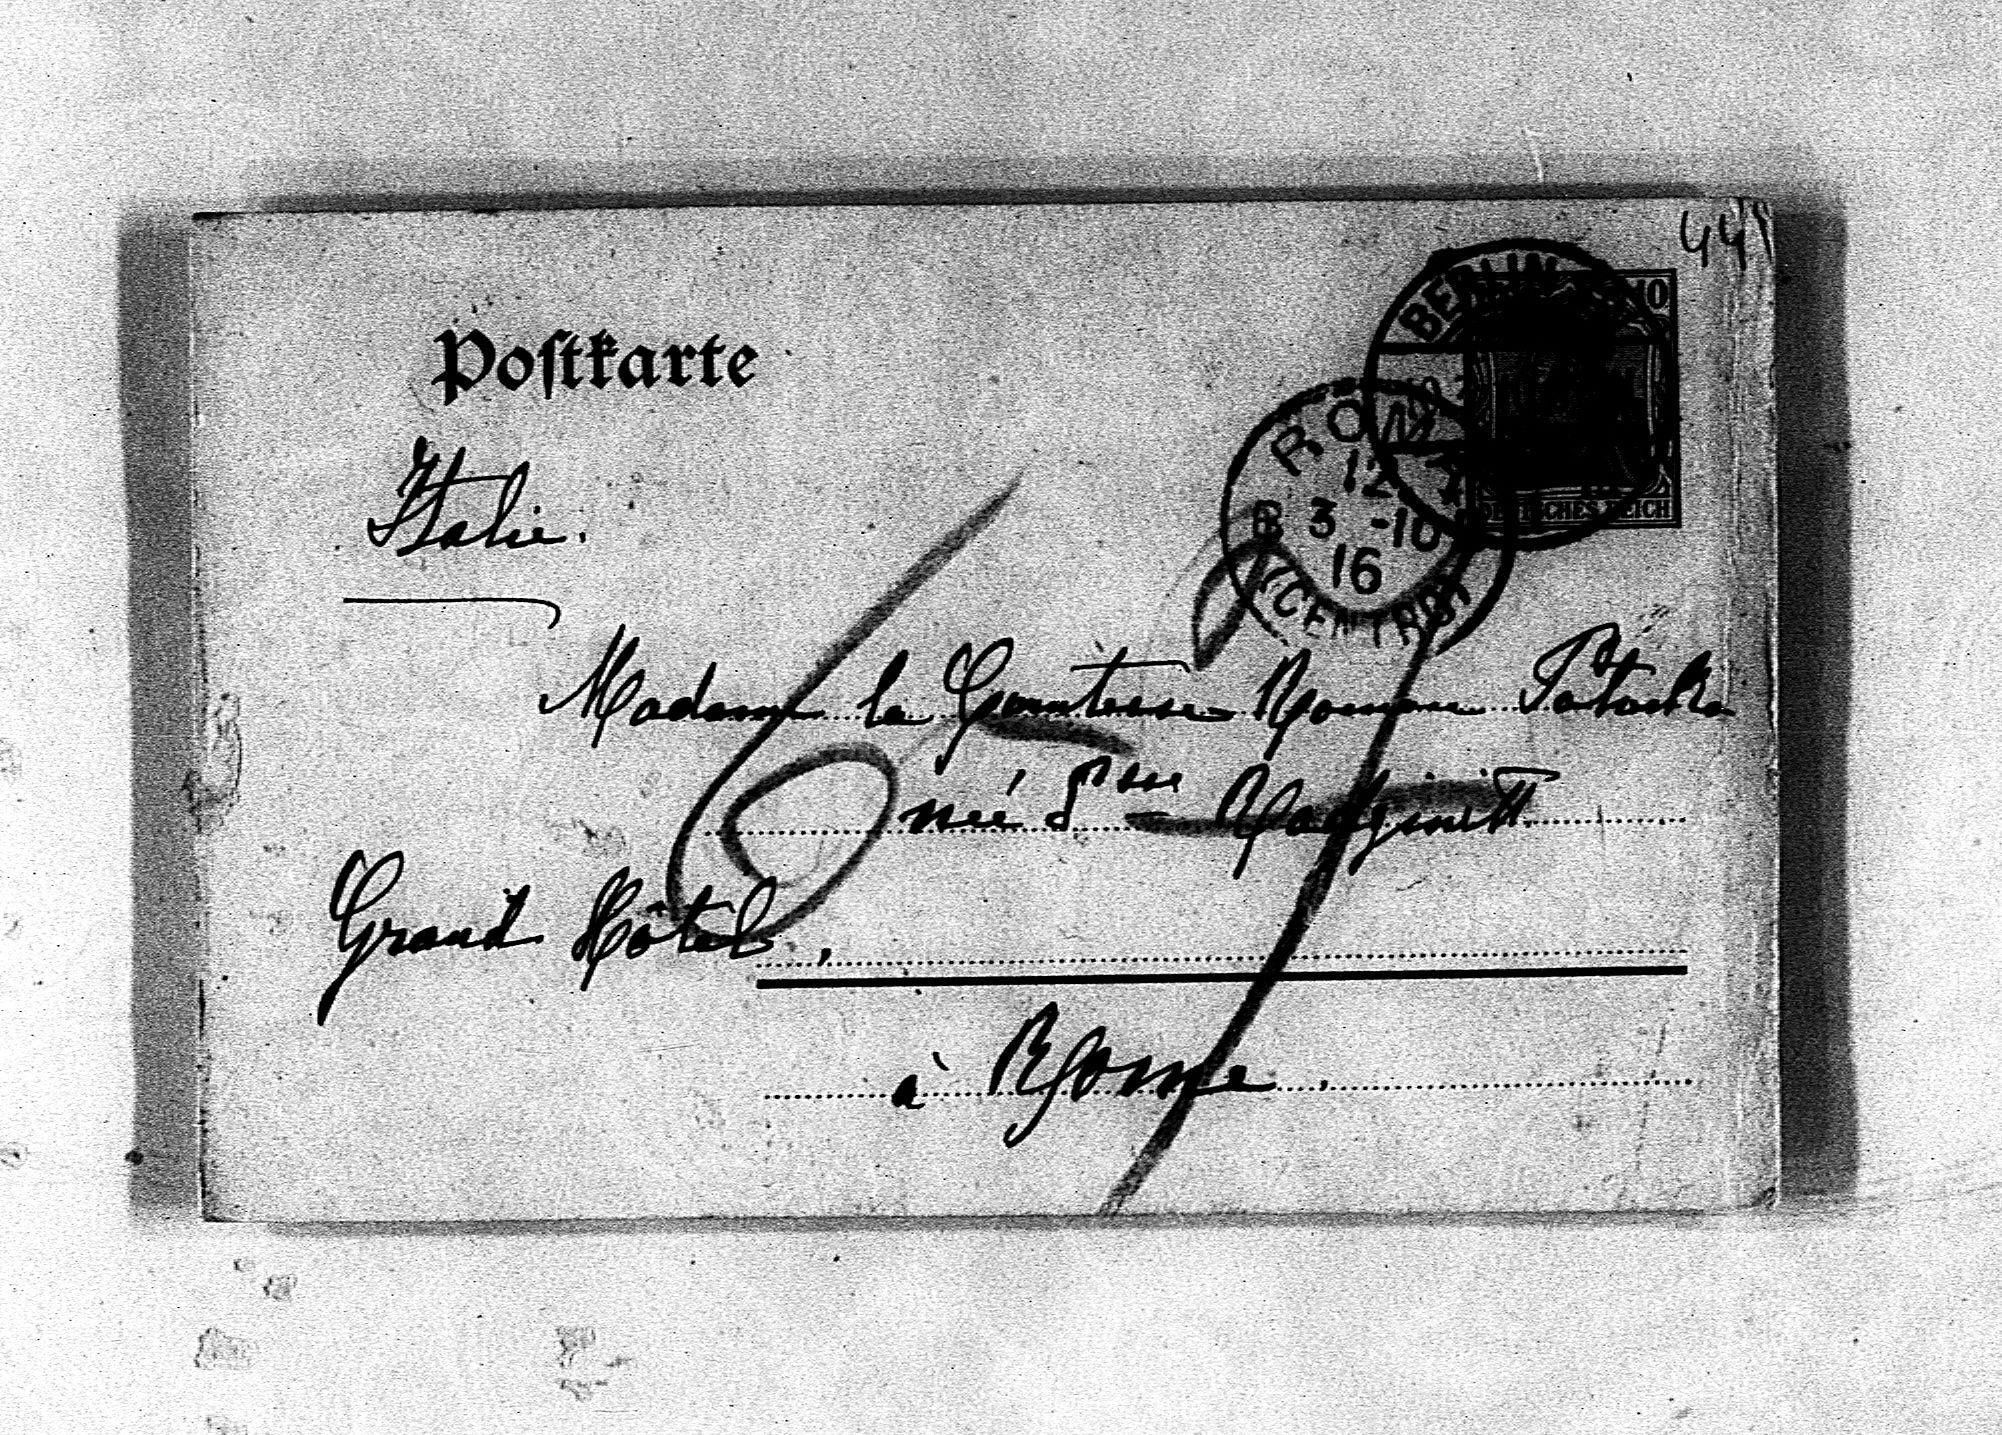 44
Postkarte
BERLIN
10
DEUTSCHES REICH
RO
12
B 3 -10
16
(CENTRO)
Italie.
Madame la Comtesse Roman Potocka
née Psse Radziwill
Grand Hôtel,
à Rome.
67